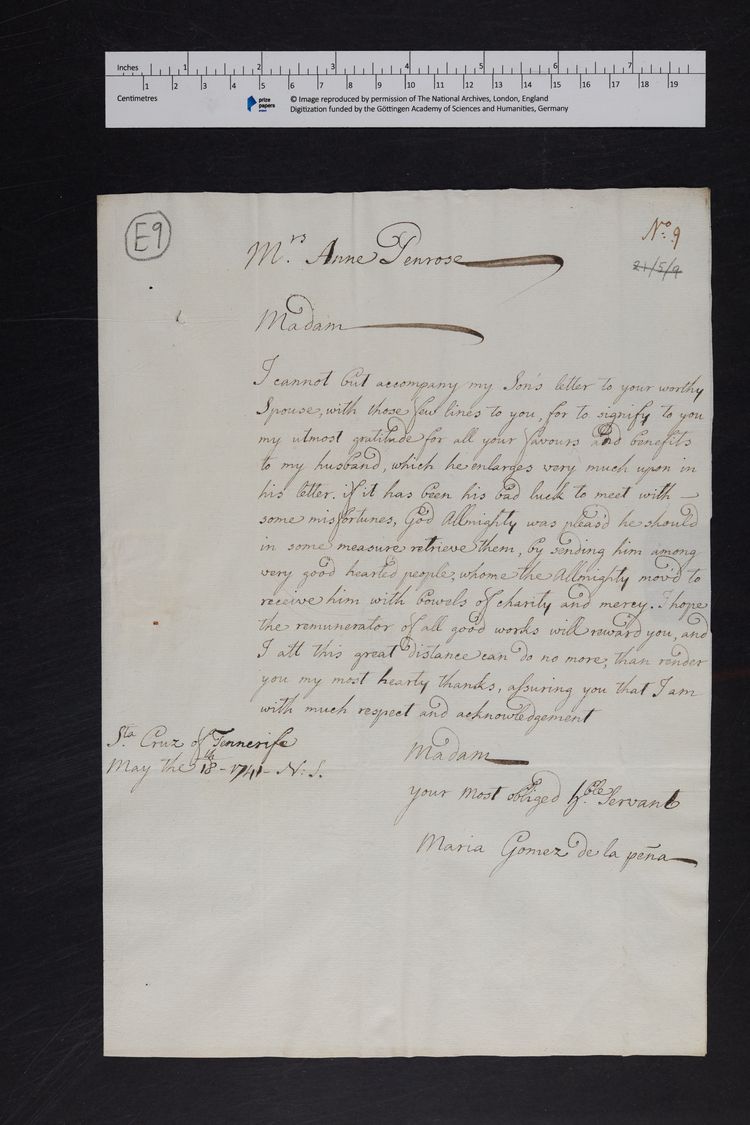 Inches 1 2 3 4 5 6 7
1 2 3 4 5 6 7 8 9 10 11 12 13 14 15 16 17 18 19
Centimetres
prize papers
© Image reproduced by permission of The National Archives, London, England
Digitization funded by the Göttingen Academy of Sciences and Humanities, Germany
E9
No. 9
21/5/9
Mrs. Anne Penrose
Madam
I cannot but accompany my Son's letter to your worthy
Spouse, with those few lines to you, for to signify to you
my utmost gratitude for all your favours and benefits
to my husband, which he enlarges very much upon in
his letter. if it has been his bad luck to meet with —
some misfortunes, God Allmighty was pleasd he should
in some measure retrieve them, by sending him among
very good hearted people, whome the Allmighty mov'd to
receive him with bowels of charity and mercy.. I hope
the remunerator of all good works will reward you, and
I att this great distance can do no more, than render
you my most hearty thanks, assuring you that I am
with much respect and acknowledgement
Sta. Cruz of Tennerife
May the 18th - 1741 - N: S.
Madam
your most obliged hble. Servant
Maria Gomez de la peña